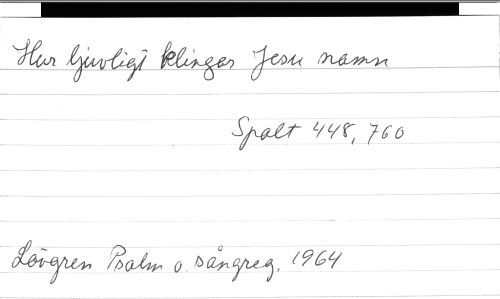 Hur ljuvligt klingar Jesu namn
Spalt 448, 760
Lövgren Psalm o. sångreg. 1964